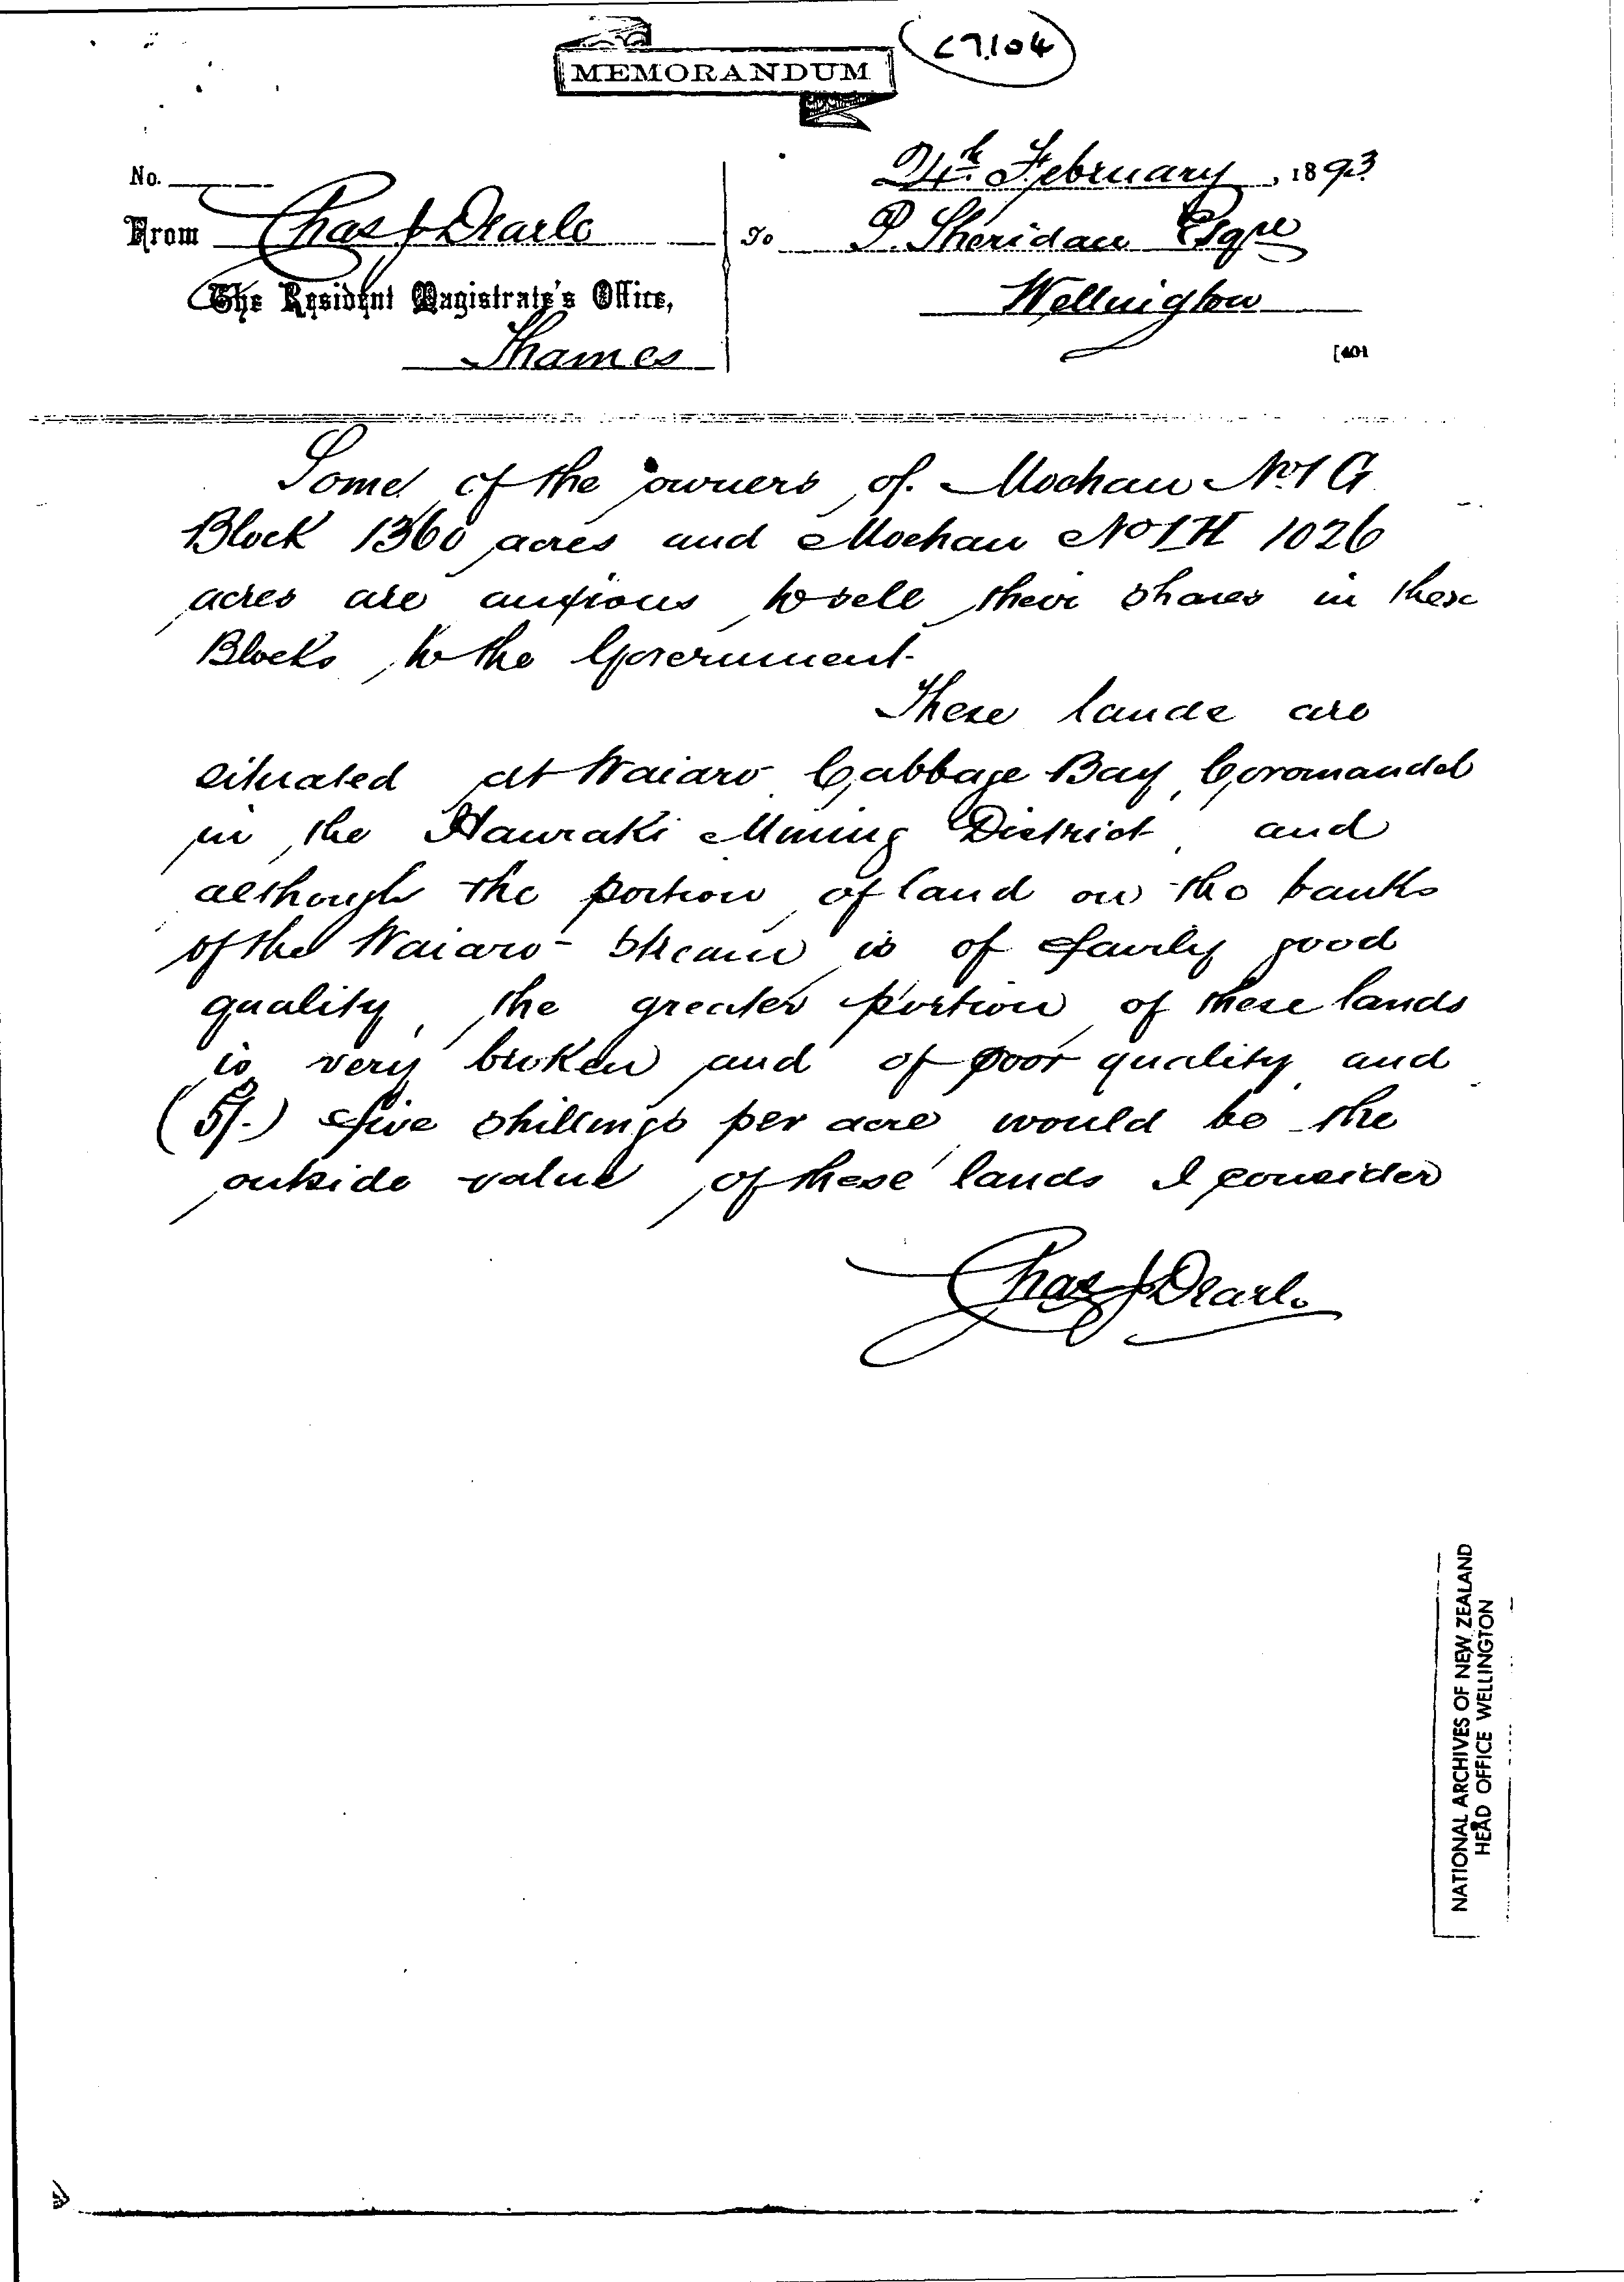 C7104
MEMORANDUM
24th February, 1893
No.
From Chas J Dearle To P. Sheridan Esqre
The Resident Magistrate's Office, Wellington
Thames [401
Some of the owners of Moehau No 1 G
Block 1360 acres and Moehau No 1 H 1026
acres are anxious to sell their shares in these
Blocks, to the Government.
These lands are
situated at Waiaro Cabbage Bay, Coromandel
in the Hauraki Mining District, and
although the portion of land on the banks
of the Waiaro Stream is of fairly good
quality, the greater portion of these lands
is very broken and of poor quality and
(5/-) five shillings per acre would be the
outside value of these lands I consider
Chas J Dearle
NATIONAL ARCHIVES OF NEW ZEALAND
HEAD OFFICE WELLINGTON